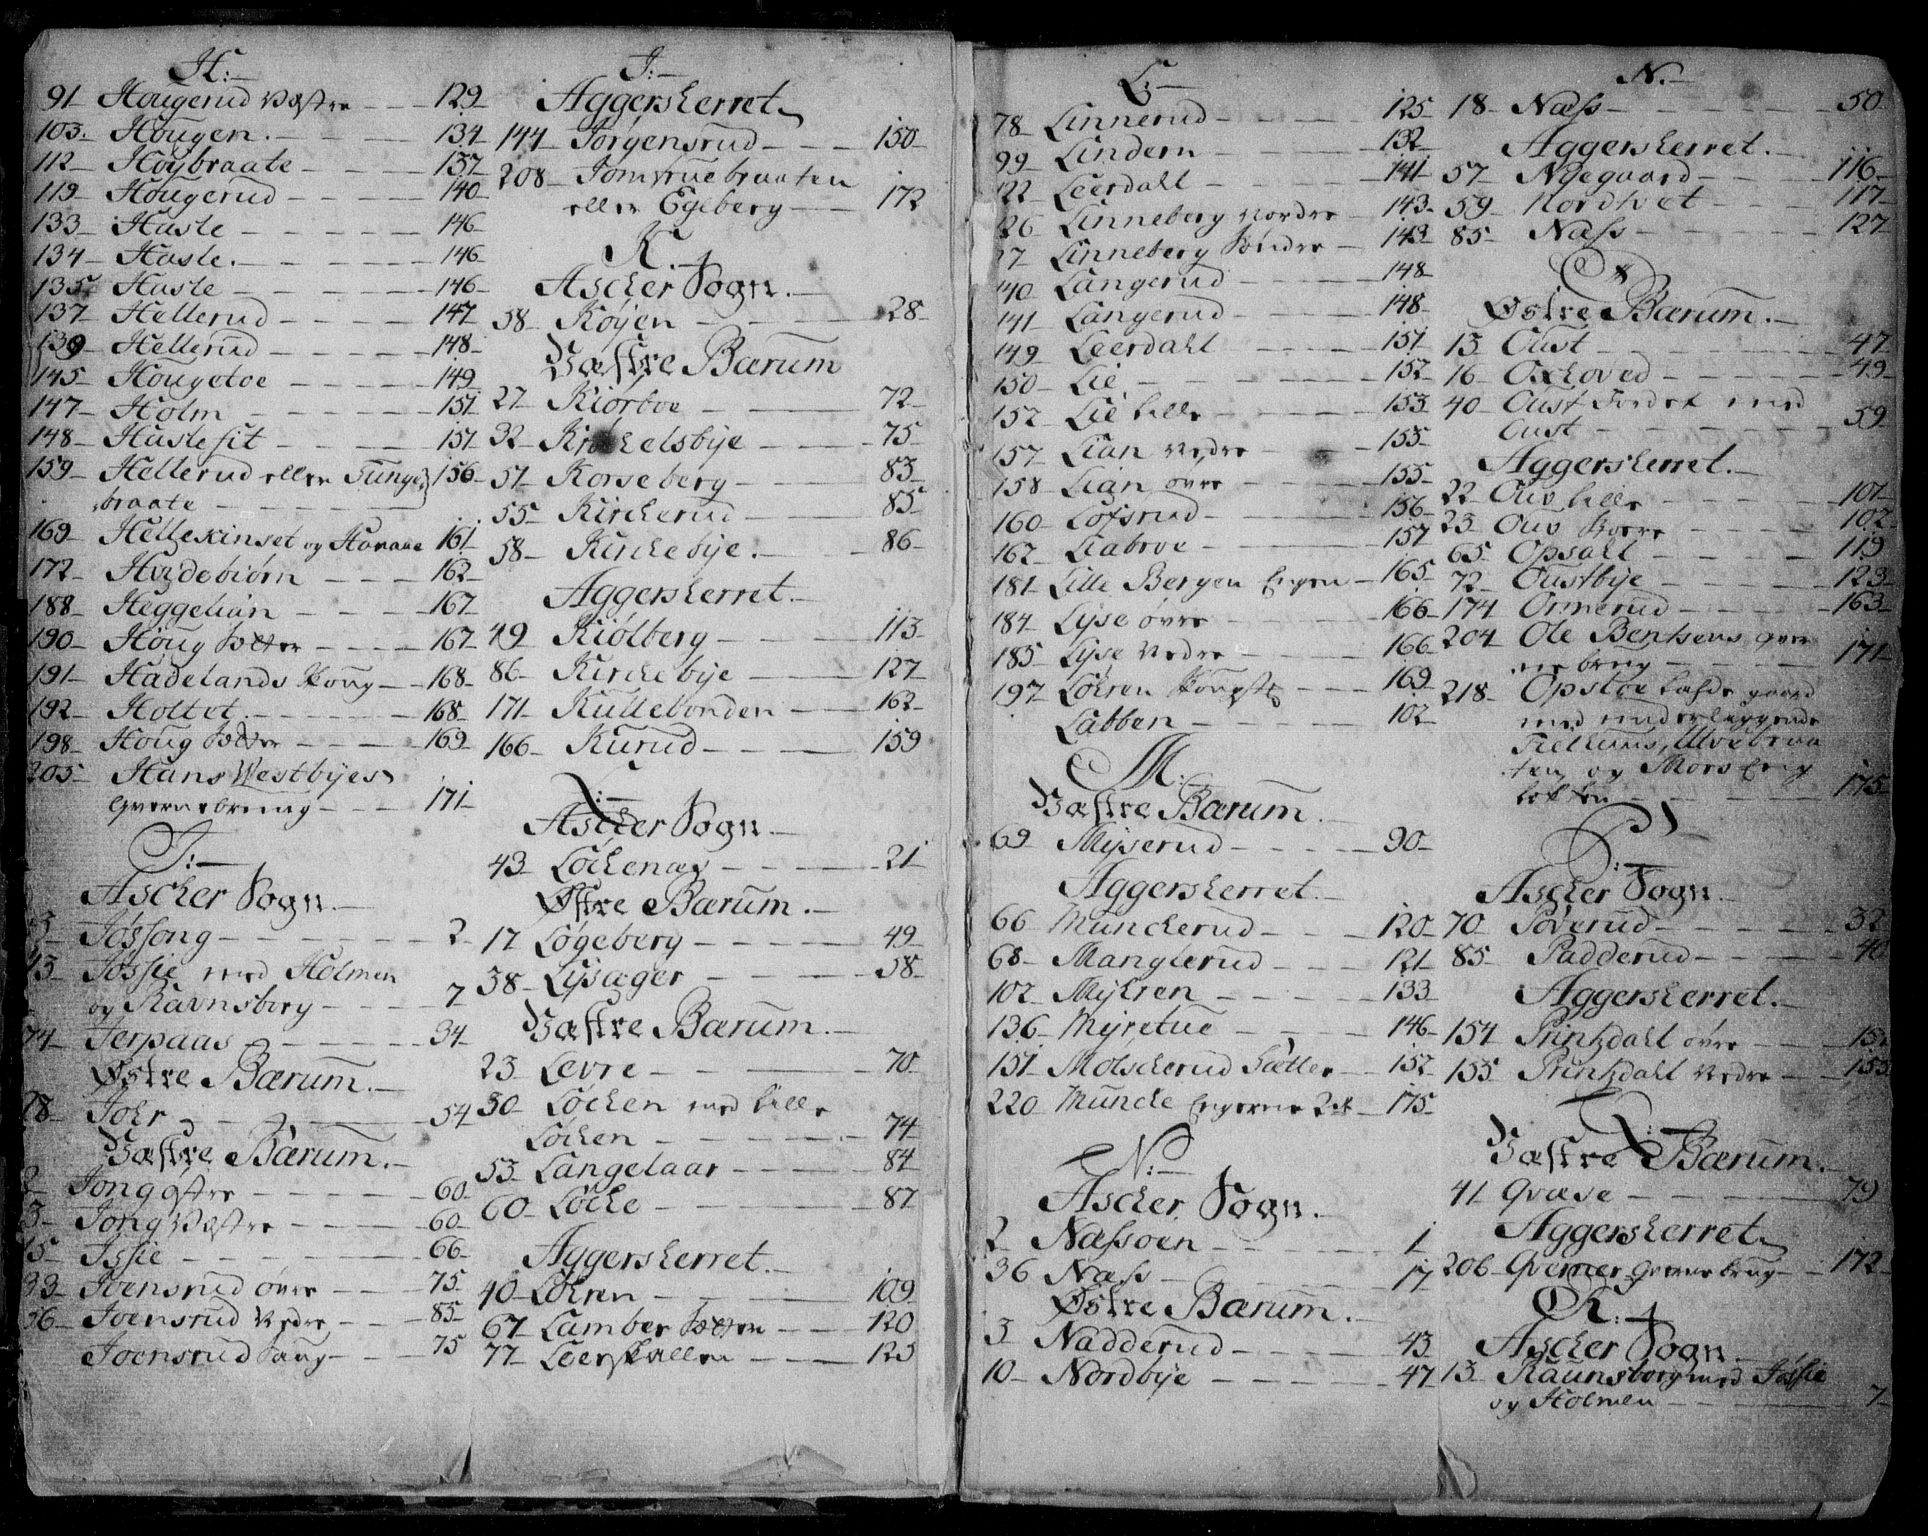 H:
91 Hougerud Væstre 129
103. Hougen. 134
112 Høybraate 137
119 Hougerud 140
133 Hasle 146
134 Hasle. 146
135 Hasle 146
137 Hellerud 147
139 Hellerud 148
145 Hougetoe 149
147 Holm 151
148 Haslesit 151
159 Hellerud eller Tunge 156
braate
169 og 161
172 Hvidebiørn 162
188 Heggeliān 167
190 Houg Sætter 167
191 Hadelands Skoug 168
192 Holtet 168
198 Houg Sætter 169
205 Hans Westbyes
Qvernebrug 171
I:
Ascher Sogn.
3 Jøssong 2
13 Jøssie med Holmen
og Ravnsborg 7
74 Jerpaas 34
Østre Bærum.
28 Johr 54
Væstre Bærum.
2 Jong østre 60
3 Jong Væstre 60
15 Issie 66
33 Joensrud øvre 75
56 Joensrud Nedre 85
Joensrud Saug 75
I:
Aggersherret
144 Jørgensrud 150
208 Jomfruebraaten
eller Egeberg 172
K.
Ascher Sogn.
58 Køyen 28
Væstre Bærum
27 Kiørboe 72
32 Krøckelsbye 75
51 Korseberg 83
55 Kirckerud 85
58 Kirckebye. 86
Aggersherret.
49 Kiølberg 113
86 Kirckebye 127
171 Kullebonden 162
166 Kurud 159
L:
Ascher Sogn.
43 Løckenæs 21
Østre Bærum.
17 Løgeberg 49
38 Lysager 58
Væstre Bærum.
23 Levre 70
30 Løcken med Lille
Løcken 74
53 Langelaar 84
60 Løcke 87
Aggersherret.
40 Løkren 109
67 Lamber Sætter 120
77 Leerskallen 125
L:
78 Linnerud 125
99 Lindern 132
122 Leerdahl 141
26 Linneberg Nordre 143
27 Linneberg Søndre 143
140 Langerud 148
141 Langerud 148
149 Leerdahl 151
150 Lie 152
152 Lie Lille 153
157 Lian Nedre 155
158 Lian øvre 155
160 Lofsrud 156
162 Liabroe 157
181 Lille Bergen Engen 165
184 Lyse øvre 166
185 Lyse Nedre 166
197 Løkren 169
Labben 102
M:
Væstre Bærum.
69 Myserud 90
Aggersherret.
66 Munckerud 120
68 Manglerud 121
102 Myhren 133
136 Myretue 146
151 Molscherud Sætter 152
220 Munche Engerne 2de 175
N:
Ascher Sogn.
2 Næssøen 1
36 Næss 17
Østre Bærum.
3 Nadderud 43
10 Nordbye 47
N.
18 Næss 50
Aggersherret.
57 Nyegaard 116
59 Nordtvet 117
85 Næss 127
Ø
Østre Bærum.
13 Oust 47
16 Oxhoved 49
40 Oust Fordet med
Oust 59
Aggersherret.
22 Ous Lille 101
23 Ous Store 102
65 Opsahl 119
72 Oustbye 123
174 Ormerud 163
204 Ole Bentsens Qver
nebrug 171
218 Opstoe Løssegaard
med underliggende
Ulvebraa
ten og Mors Eng
løkken 175
P:
Ascher Sogn.
70 Poverud 32
85 Padderud 40
Aggersherret.
154 Prinsdahl øvre 154
155 Prinsdahl Nedre 155
Q:
Væstre Bærum.
41 Qvæse 79
Aggersherret
206 Qverner Qvernebrug 172
R:
Ascher Sogn.
13 Raunsborg med Jøssie
og Holmen 7